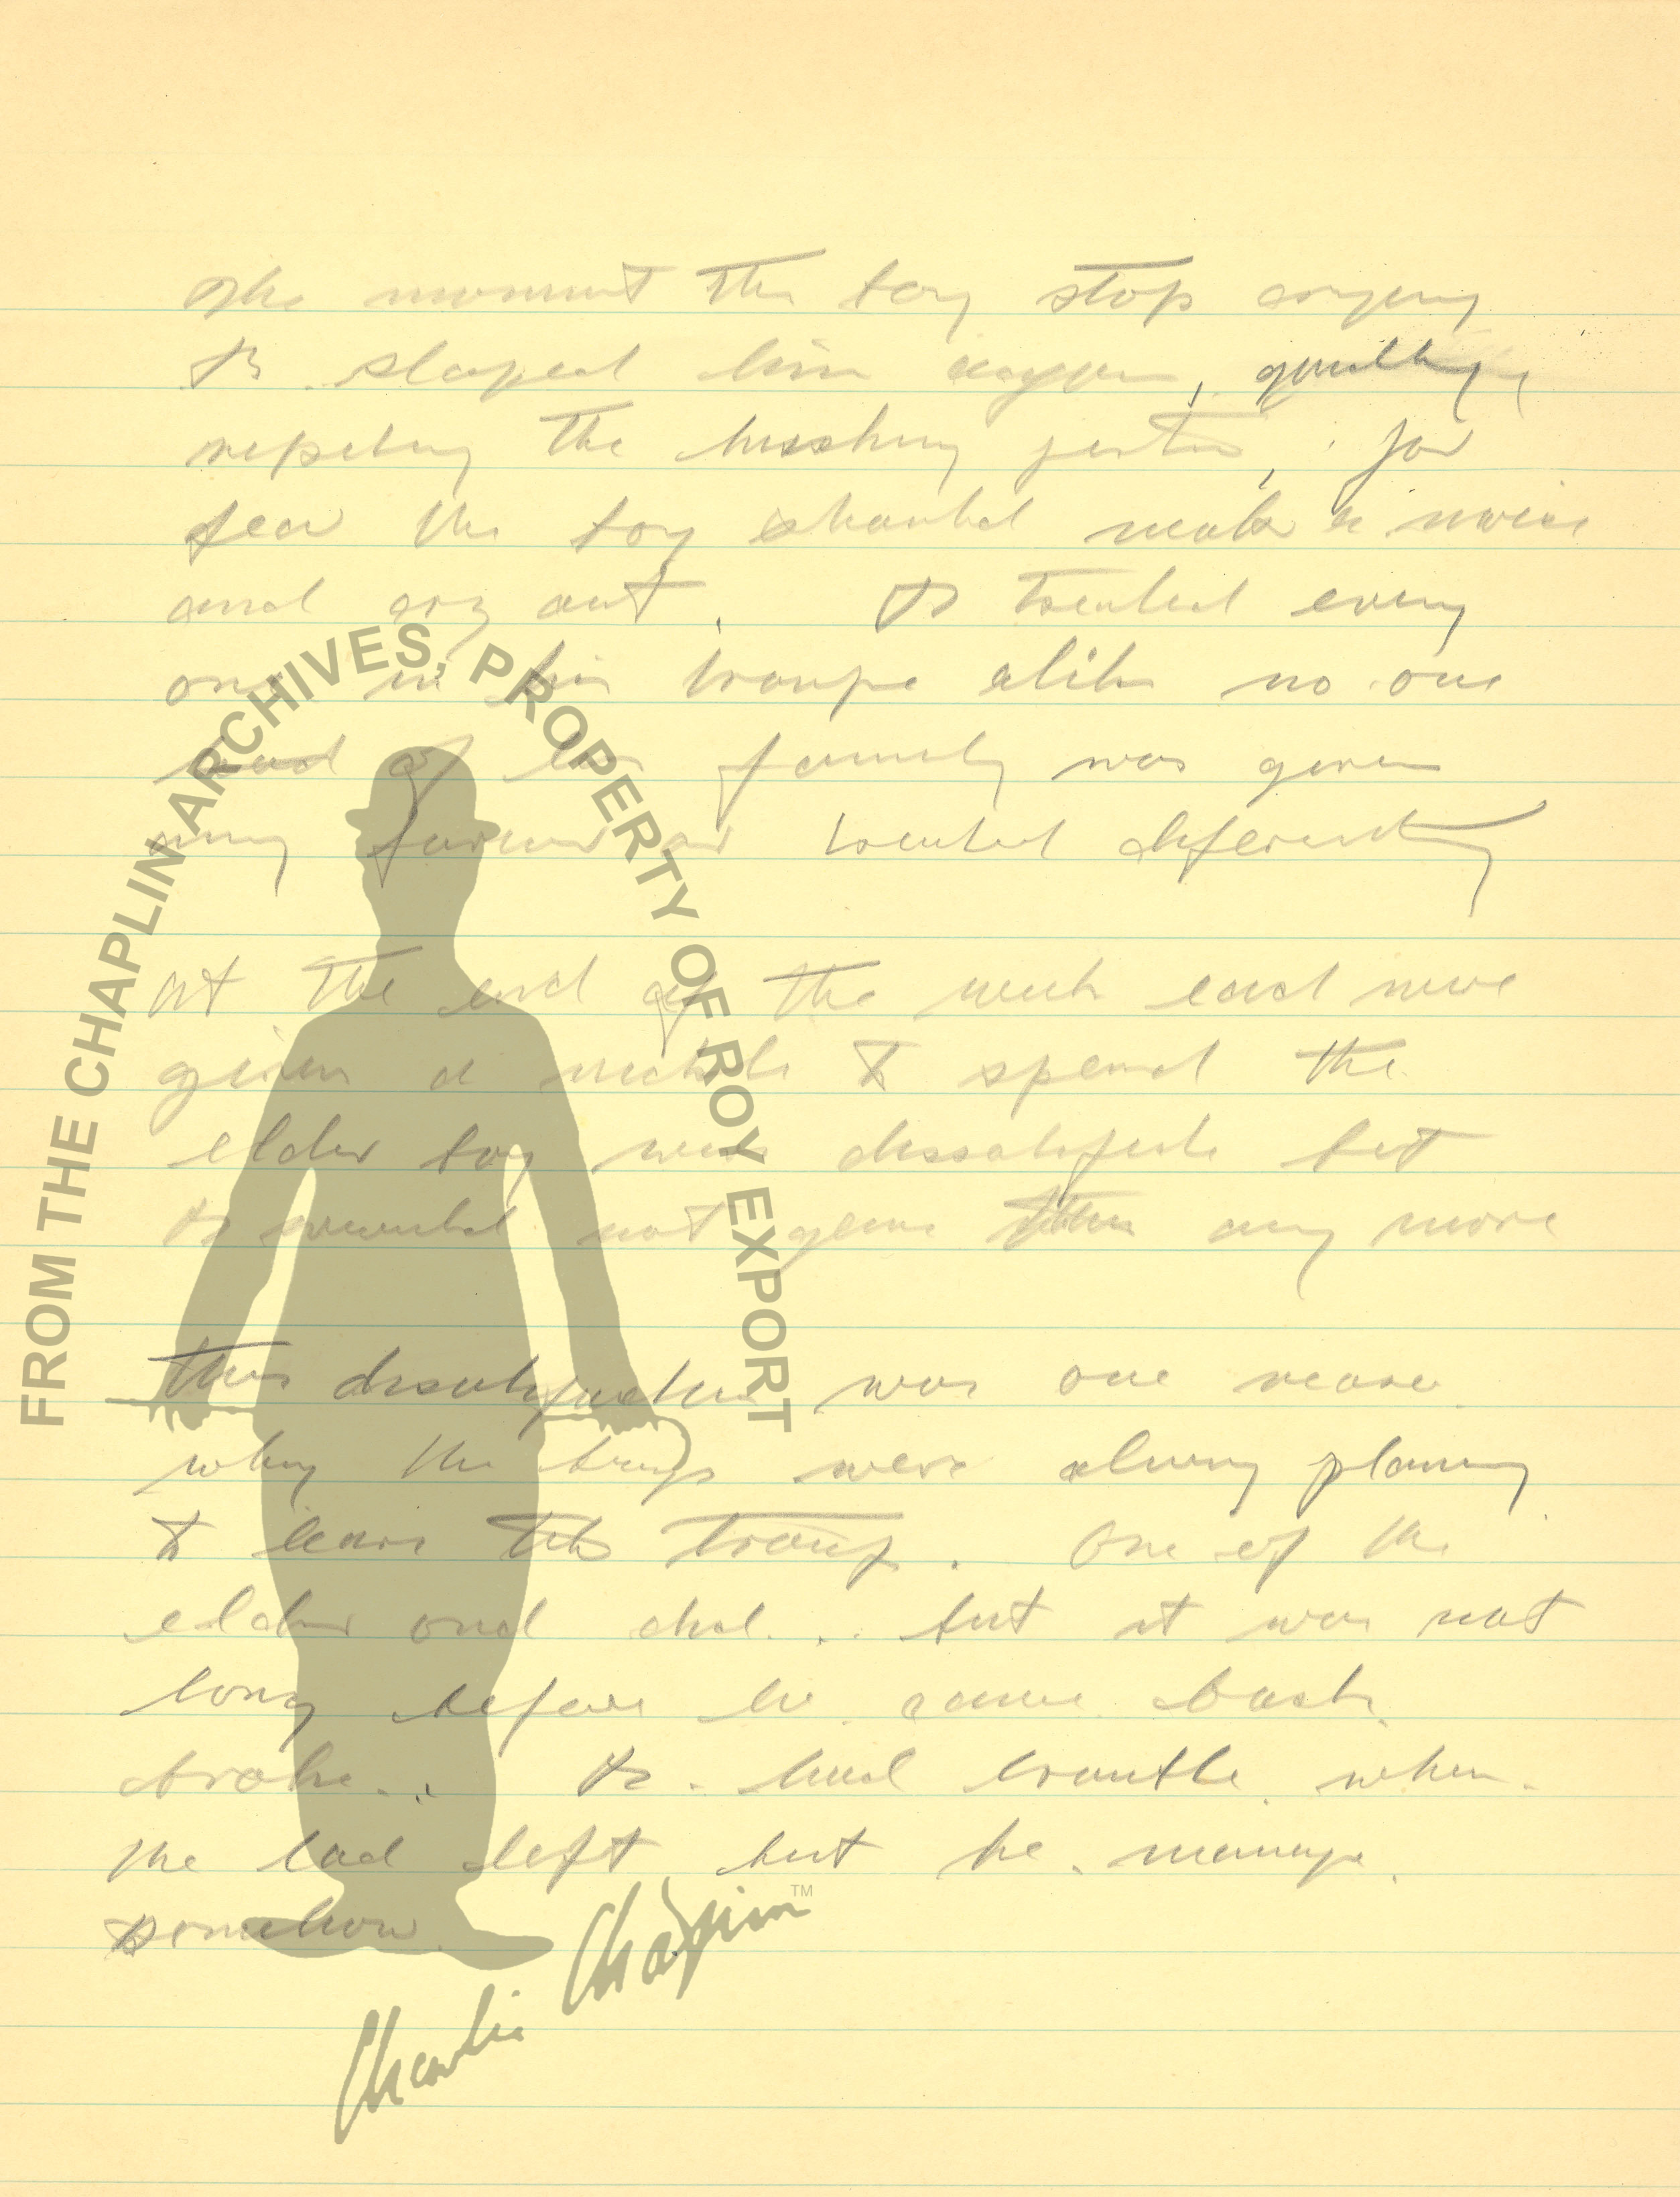 The moment the boy stop crying
B slaped him again, quickly,
repeting the hushing gester, for
fear the boy should make a noise
and cry out. B treated every
one in his troupe alike no one
of his family was given
any favour or treated diferently
At the end of the week each were
given a nickle to spend the
elder boy were dissatisfide but
B would not give them any more
This dissatisfaction was one reason
why the boys were alway planing
to leave the troup. One of the
elder ond did... but it was not
long before he came back
broke... B. had trouble when
the lad left but he manage
somehow.
FROM THE CHAPLIN ARCHIVES, PROPERTY OF ROY EXPORT
Charlie Chaplin TM